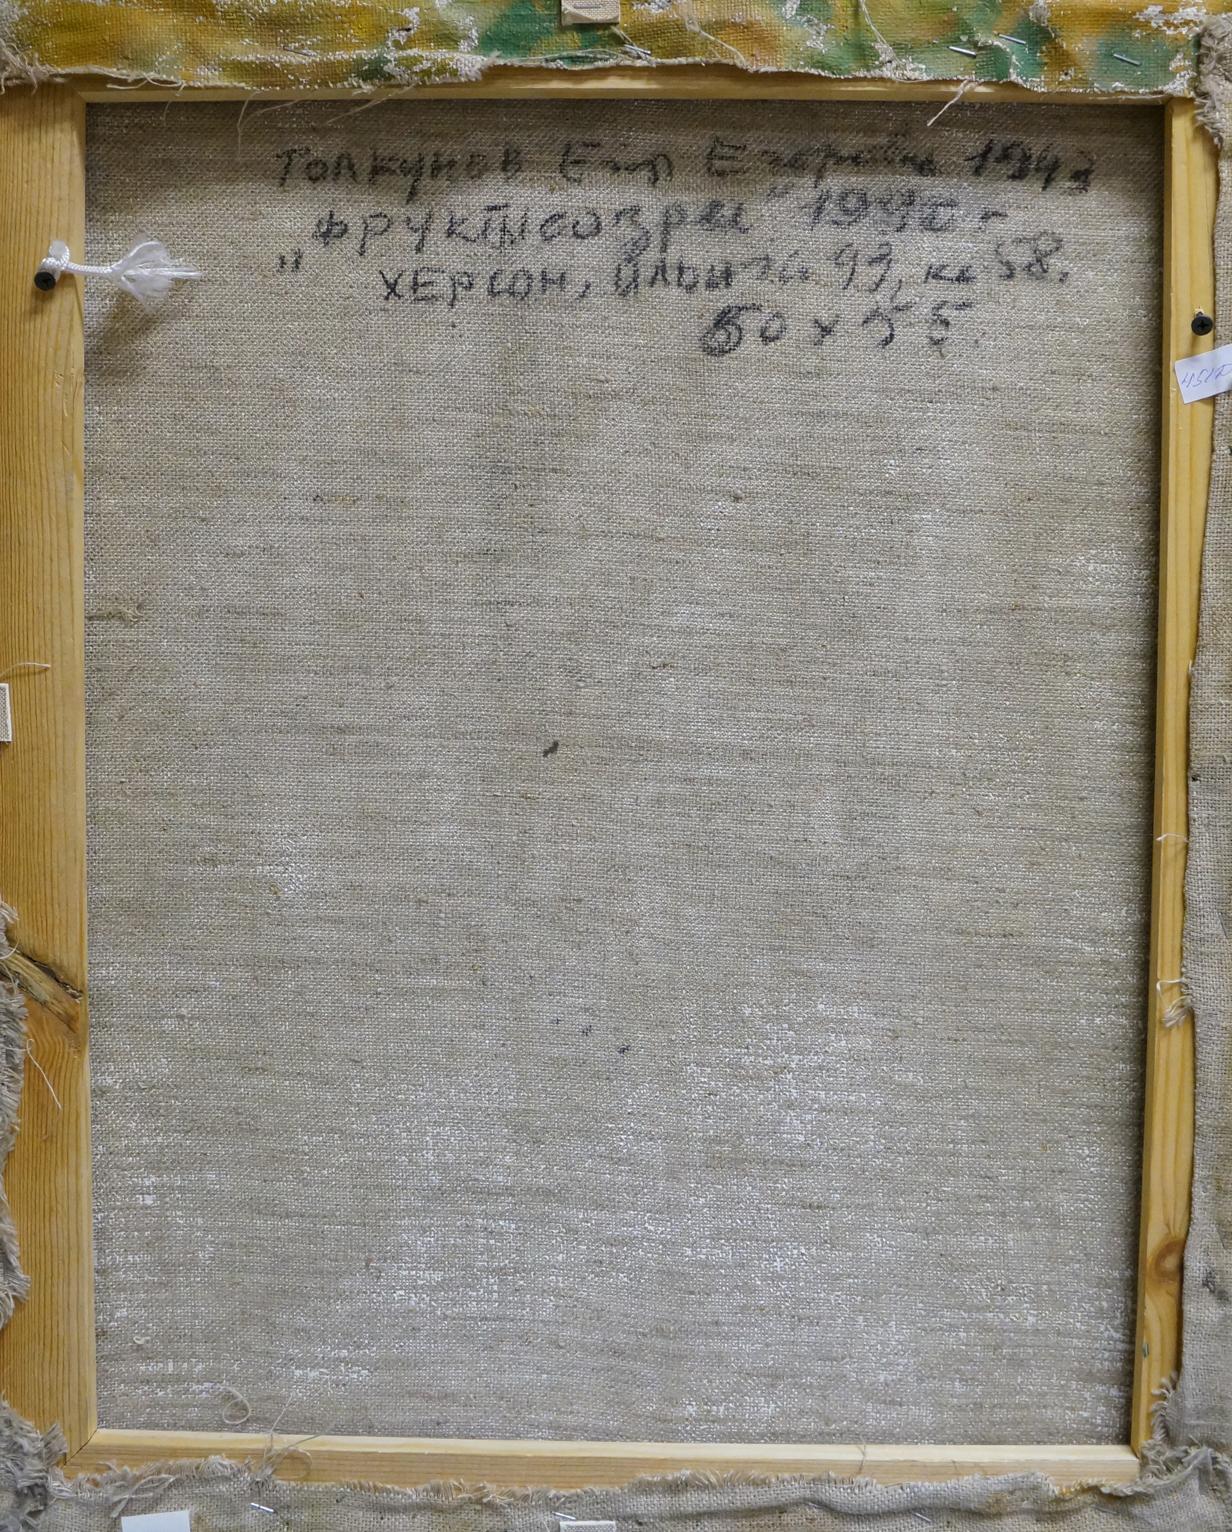 Толкунов Егор Егорович 1943
„Фрукты созрели" 1990 г
Херсон, Ильича 93, кв 58.
60 х 55.